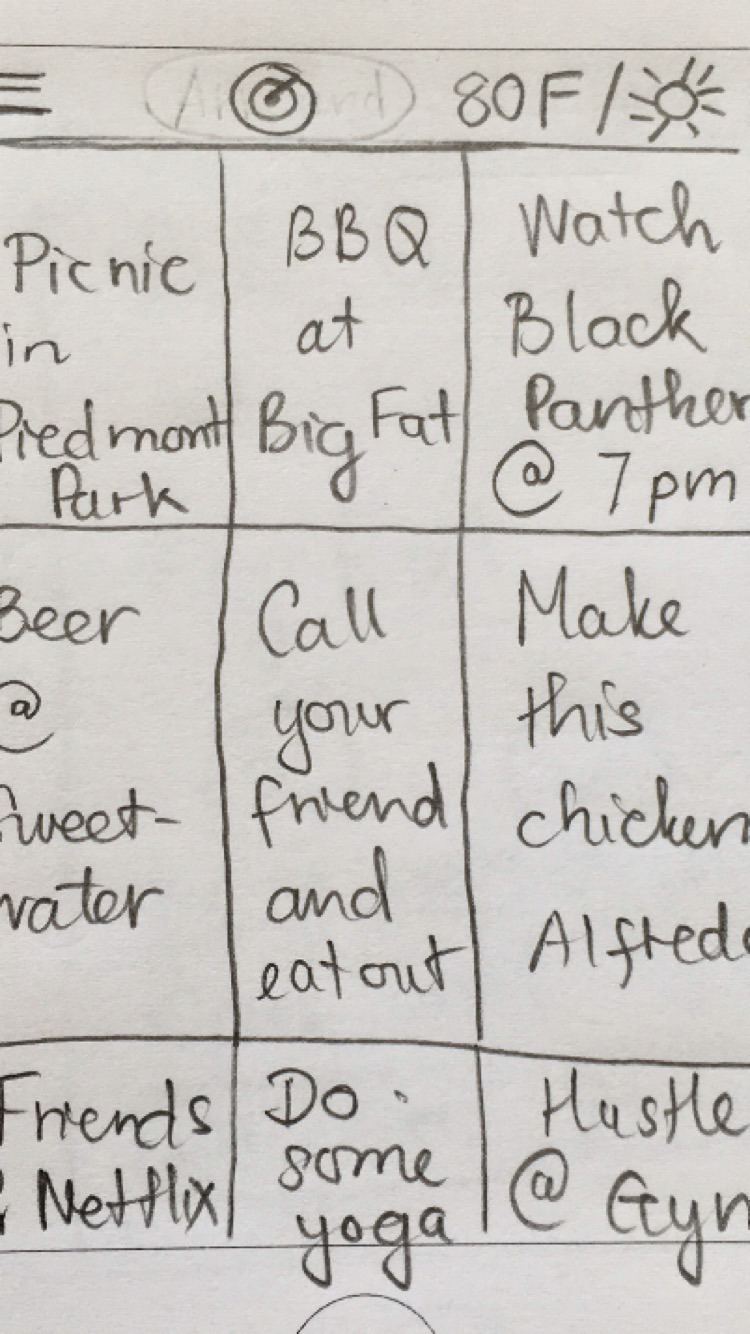 80F/
Picnic
in
Piedmont
Park
BBQ
at
Big Fat
Watch
Black
Panther
@ 7pm
Beer
@
Sweet-
water
Call
your
friend
and
eat out
Make
this
chicken
Alfredo
Friends
& Netflix
Do
some
yoga
Hustle
@ Gym